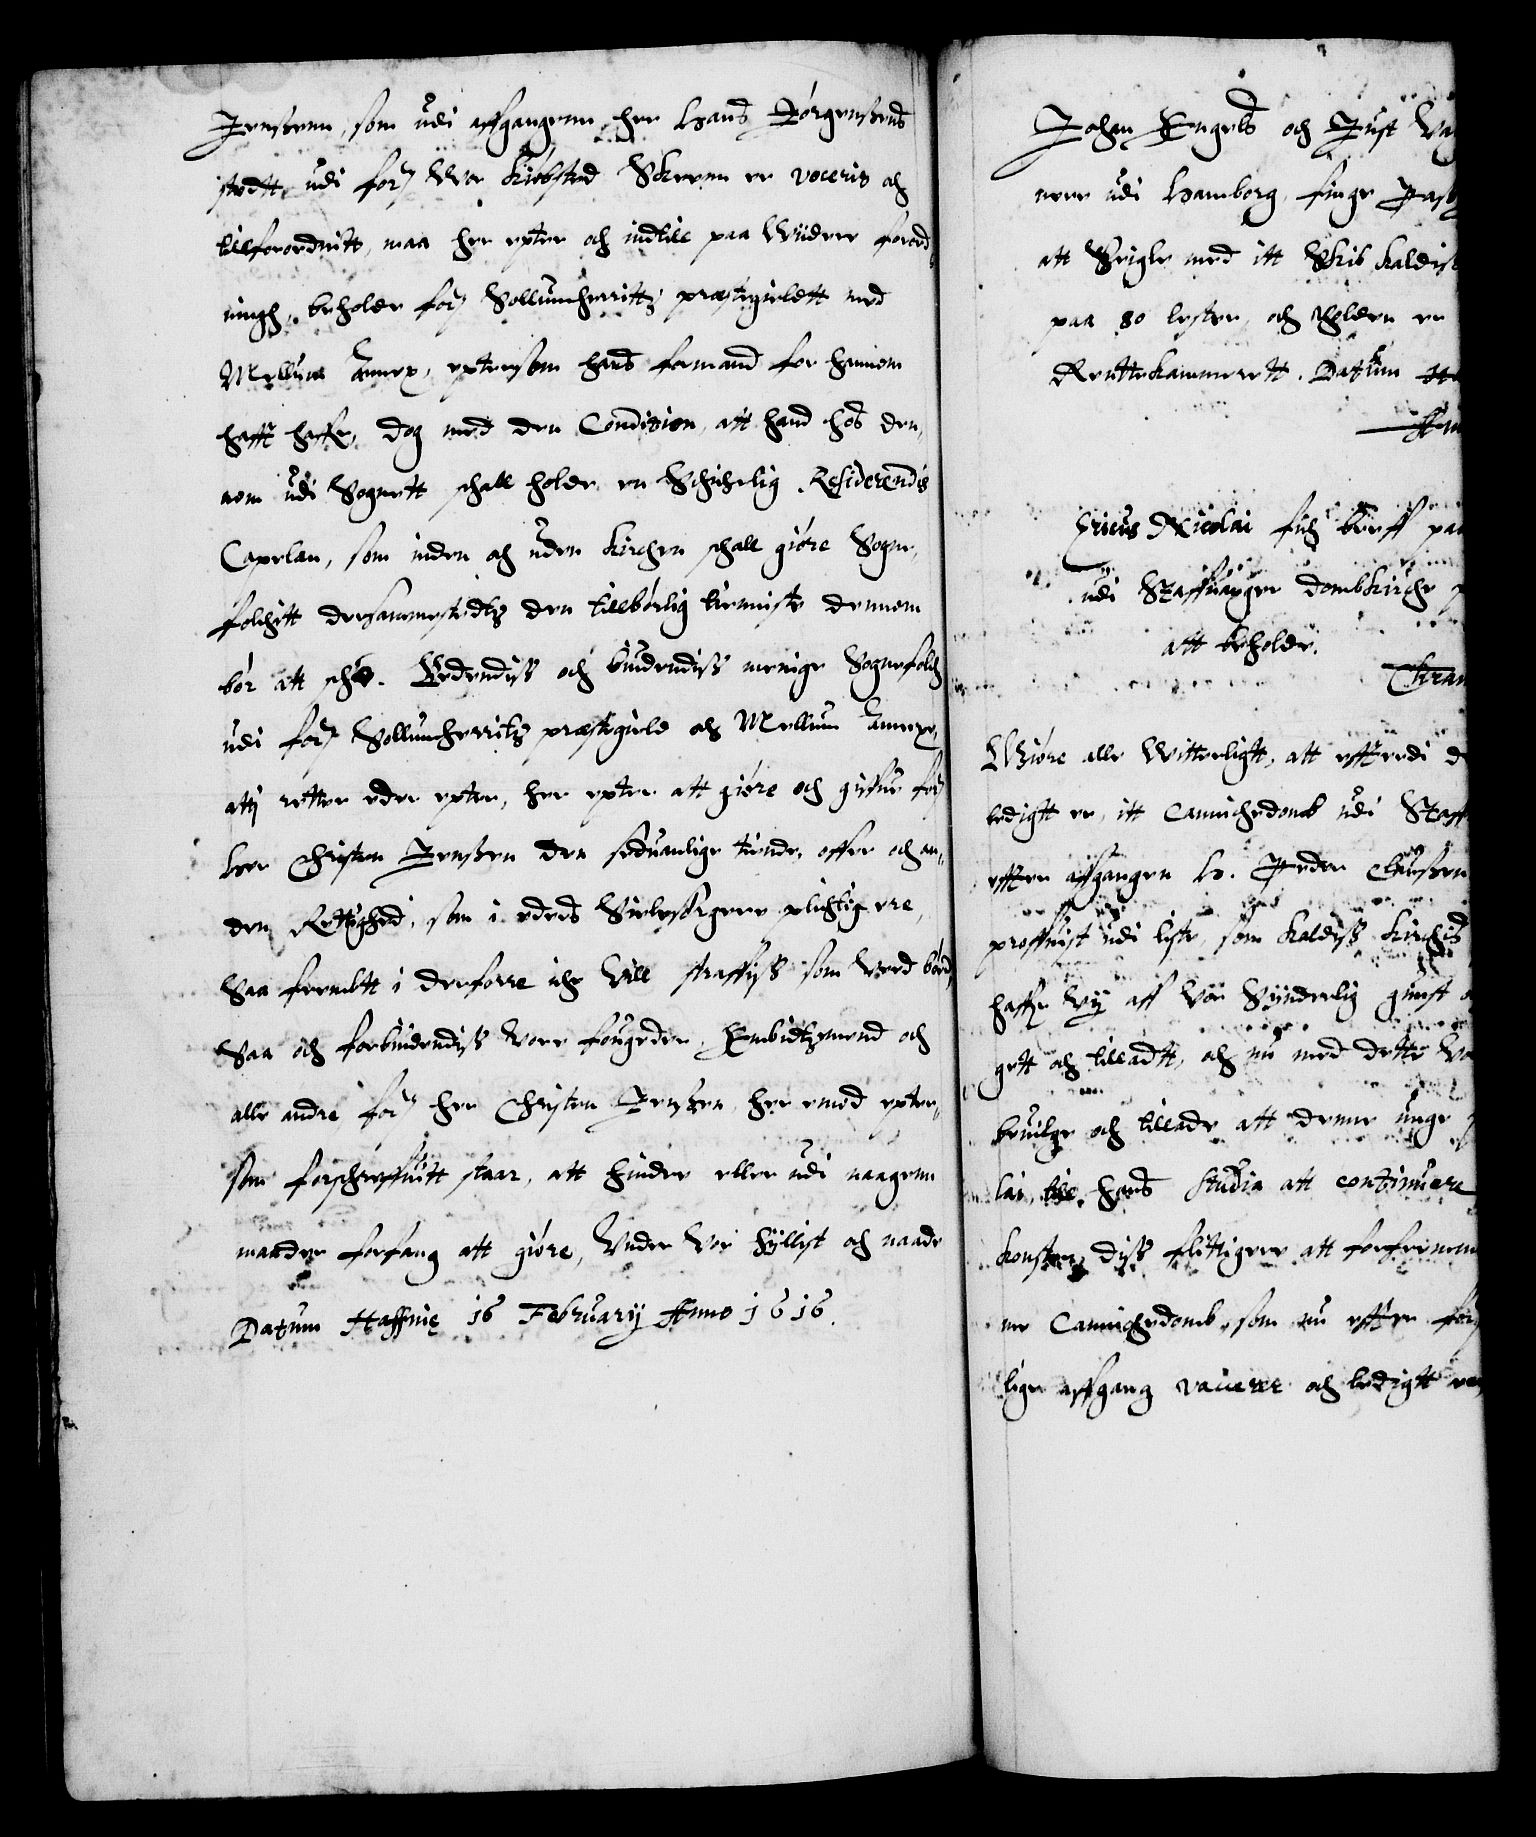 Jenssenn, som udi affgangenn her Hans Jørgenssens
stedtt udi for: Vor Kiøbsted Skeenn er voceris och
tillforordnitt, maa her epter och indtill paa Wiidere forord-
ningh, beholde for: Sollumherritz præstegieldtt med
Mellum Annex, eptersom hans formand for hannom
hafft haffr, dog med den Condition, att hand hos den-
nom udi Sognett schall holde en Schichelig Residerendis
Capelan, som inden och uden Kirchen schall giøre Sogne-
folchitt dersammestedtz den tillbørlig tienniste dennom
bør att schee. Bedendiss och biudendiss menige Sognefolch
udi for: Sollumherritz præstegield och Mellum Annexe,
att j retter eder epter, her epter att giøre och giffue for:
Her Christen Jenssen den seduanlige tiende, offer och an-
den Rettighed, som i eders Sielesørgere plichtig ere,
Saa fremdtt i derforre iche Vill straffiss som Ved bør,
Saa och forbiudendiss Vore fougeder, Embidtzmend och
alle andre for: her Christen Jenssen her emod epter-
som forschreffuitt staar, att hindre eller udi naagenn
maader forfang att giøre, Under Vor hyllist och naade
Datum Haffnię 16 February Anno 1616.
Johan Engels och Just
nere udi Hamborg, finge
att Seigle med itt Skib kaldis
paa 80 lester, och holden er
Renttekammerett. Datum
Ericus Nicolai fich breff paa
udi Staffuanger dombkirche
att beholde.
Giøre alle Witterligtt, att efftterdi
ledigtt er, itt Cannichedomb udi
effter affgangen H. Peder Claussen
proffuist udi liste, som kaldiss Kirchis
haffr Wy aff Vor Synderlig gunst
gett och tilladtt, och nu med dette
beuilge och tillade att denne unge
lai, till hans Studia att continuere
Konster diss flittigere att forfremme
ne Cannichedomb, som nu effter for:
lige affgang vacerer och ledigtt